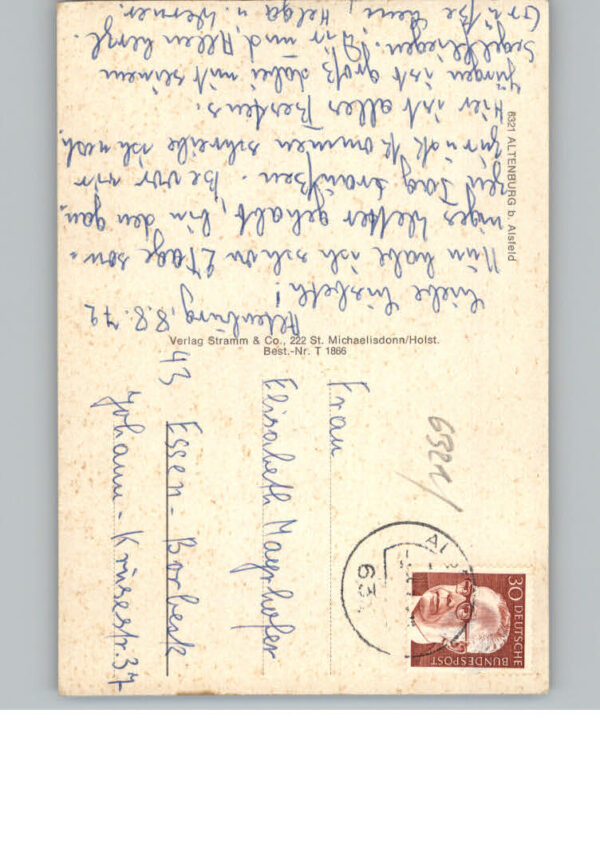 Altenburg, 8.8.72
Liebe Lisbeth!
Nun habe ich schon 2 Tage son-
niges Wetter gehabt, bin den gan-
zen Tag draußen. Bevor wir
zurück kommen schreibe ich noch.
Hier ist alles Bestens.
Jürgen ist groß dabei mit seinem
Segelfliegen. Dir und Allen herzl.
Grüße Leni, Helga u. Werner.
6321 ALTENBURG b. Alsfeld
Verlag Stramm & Co., 222 St. Michaelisdonn/Holst.
Best.-Nr. T 1866
6321/
30 DEUTSCHE
BUNDESPOST
63
Frau
Elisabeth Mayrhofer
43 Essen-Borbeck
Johann-Krusestr. 37